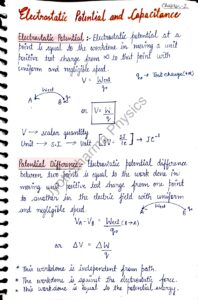 Chapter-2
Electrostatic Potential and Capacitance
Electrostatic Potential :- Electrostatic potential at a
point is equal to the workdone in moving a unit
positive test charge from ∞ to that point with
uniform and negligible speed.
q₀ → Test charge (+ve)
V = W∞ct / q₀
or V = W / q₀
V → scalar quantity
Unit → S.I → Volt
→ JC⁻¹
Potential Difference:- Electrostatic potential difference
between two points is equal to the work done in
moving unit positive test charge from one point
to another in the electric field with uniform
and negligible speed.
or ΔV = ΔW / q₀
* This workdone is independent from path.
* The workdone is against the electrostatic force.
* This workdone is equal to the potential energy.